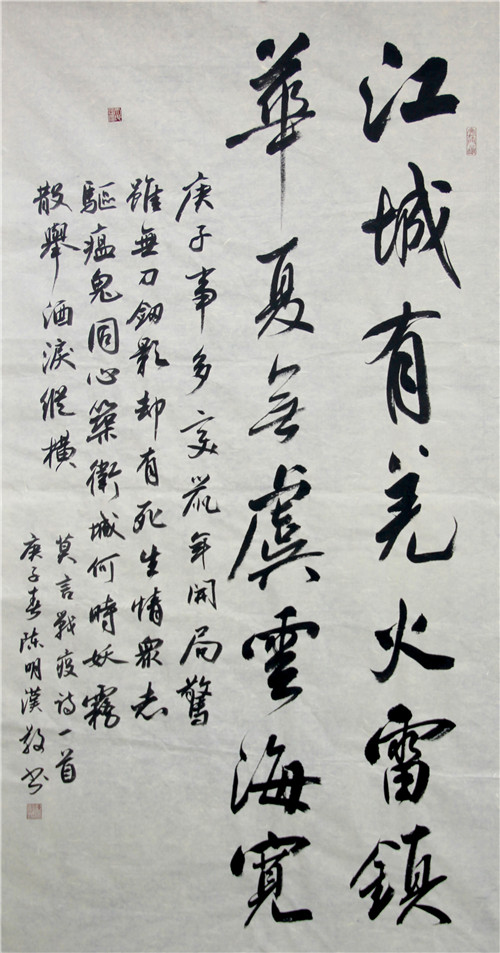 江城有恙火雷鎮
華夏無虞雲海寬
庚子事多变鼠年開局驚
雖無刀釼影却有死生情衆志
驅瘟鬼同心築衛城何時妖霧
散舉酒淚縱橫
莫言戰疫诗一首
庚子春陈明漢敬书